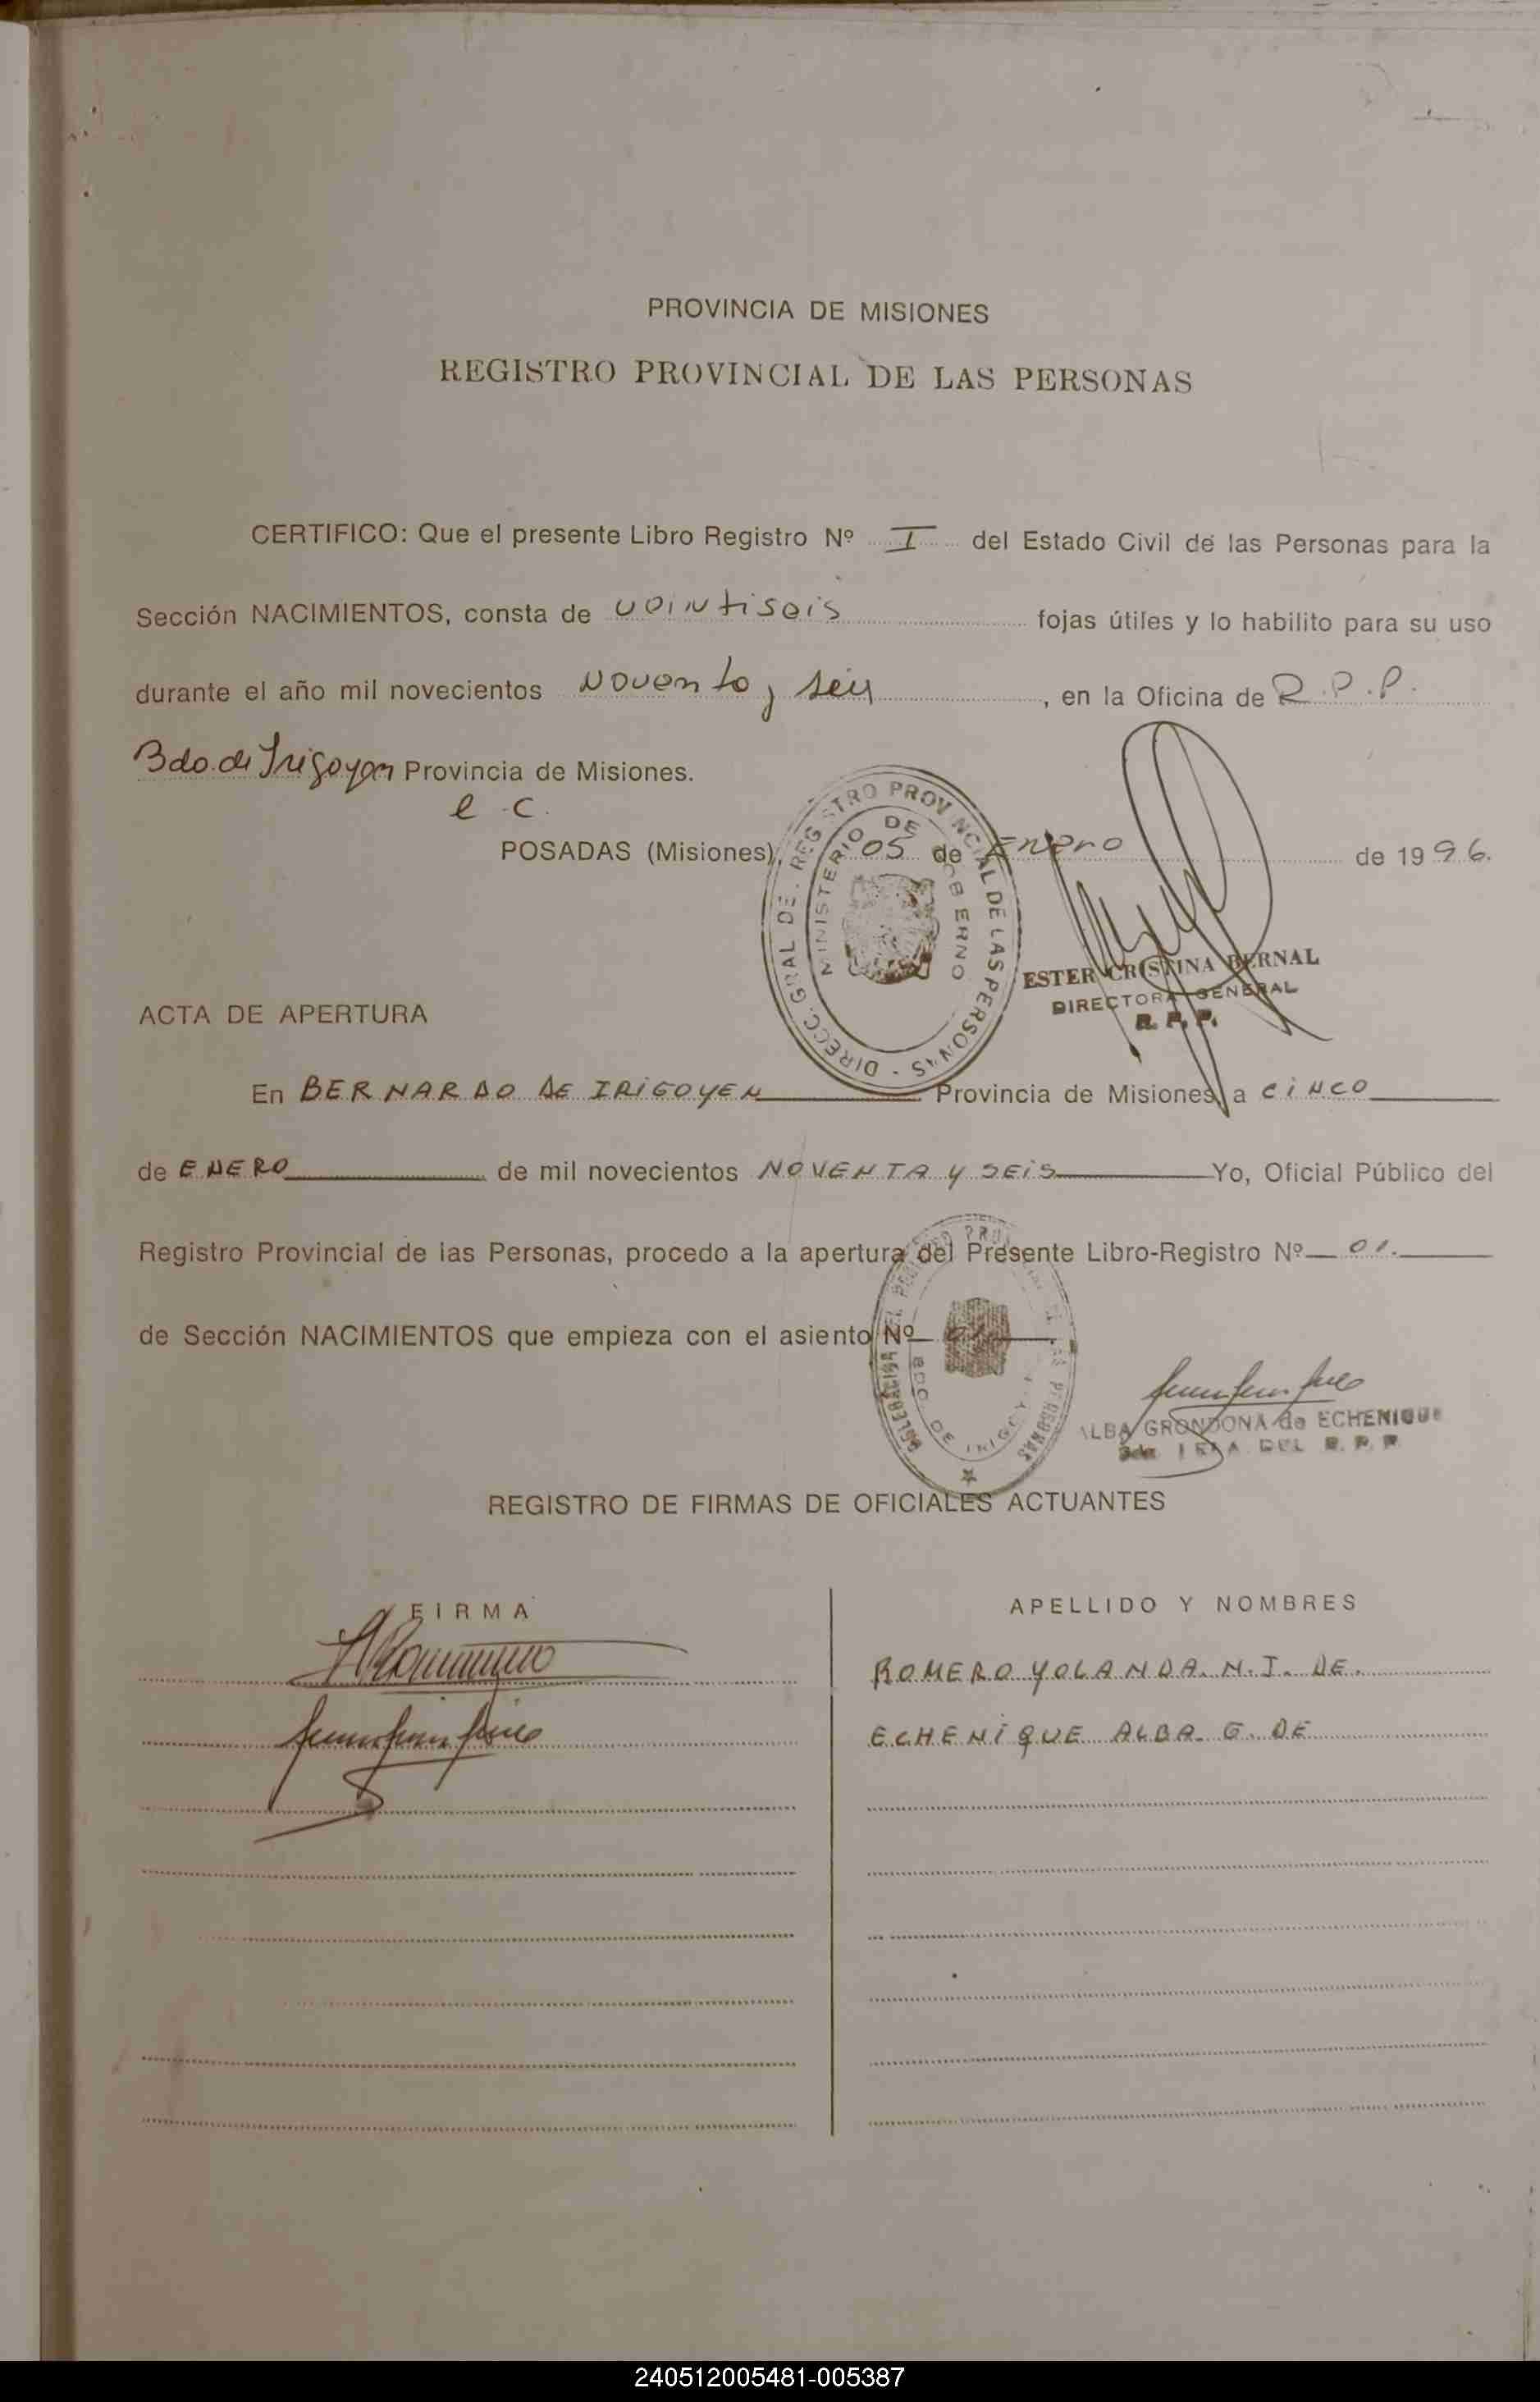 PROVINCIA DE MISIONES
REGISTRO PROVINCIAL DE LAS PERSONAS
CERTIFICO: Que el presente Libro Registro Nº I del Estado Civil de las Personas para la
Sección NACIMIENTOS, consta de veintiseis fojas útiles y lo habilito para su uso
durante el año mil novecientos Noventa y seis, en la Oficina de R.P.P.
Bdo. de Irigoyen Provincia de Misiones.
e c.
POSADAS (Misiones), 05 de Enero de 1996.
DIRECC. GRAL DE. REGISTRO PROVINCIAL DE LAS PERSONAS
MINISTERIO DE GOBIERNO
ESTER CRISTINA BERNAL
DIRECTORA GENERAL
R. P. P.
ACTA DE APERTURA
En BERNARDO DE IRIGOYEN Provincia de Misiones, a CINCO
de ENERO de mil novecientos NOVENTA Y SEIS Yo, Oficial Público del
Registro Provincial de las Personas, procedo a la apertura del Presente Libro-Registro Nº 01.
de Sección NACIMIENTOS que empieza con el asiento Nº 01
DELEGACION DEL REGISTRO PROVINCIAL DE LAS PERSONAS
BDO. DE IRIGOYEN
ALBA GRONDONA de ECHENIQUE
DEL R. P. P.
REGISTRO DE FIRMAS DE OFICIALES ACTUANTES
FIRMA
APELLIDO Y NOMBRES
ROMERO YOLANDA. N. J. DE.
ECHENIQUE ALBA. G. DE
240512005481-005387